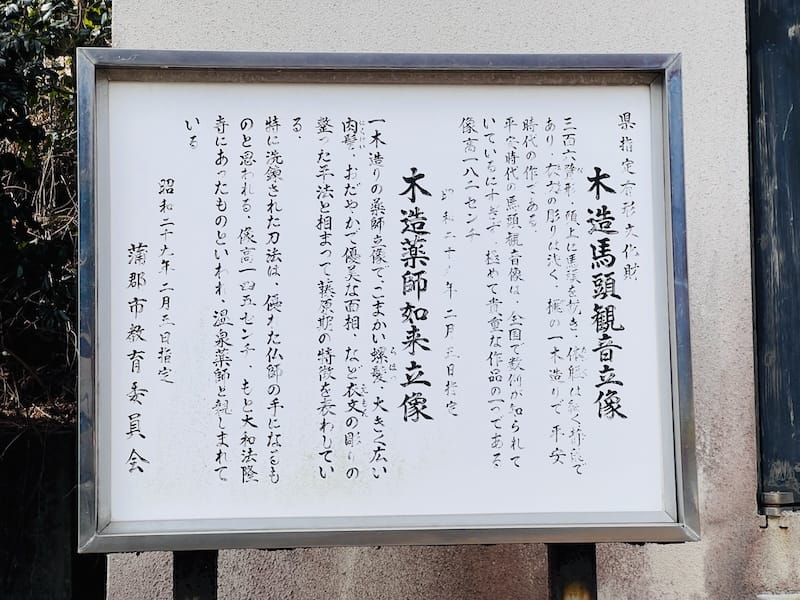 県指定有形文化財
木造馬頭観音立像
三百六臂形・頭上に馬頭を戴き・体軀は
あり・衣文の彫りは浅く・榧の一木造りで 平安
時代の作である。
平安時代の馬頭観音像は、全国で数例が知られて
いるにすぎず、極めて貴重な作品の一つである
像高一八二センチ
昭和二十九年 二月五日指定
木造薬師如来立像
一木造りの薬師立像で、こまかい螺髪・大きく広い
らほつ
肉髻・おだやかで優美な面相、など衣文の彫りの
にくけい
えもん
整った手法と相まって藤原期の特徴を表わしてい
る。
特に洗錬された刀法は、優れた仏師の手になるも
のと思われる、像高一四五センチ、もと大和法隆
寺にあったものといわれ、温泉薬師と親しまれて
いる
昭和二十九年二月五日指定
蒲郡市教育委員会